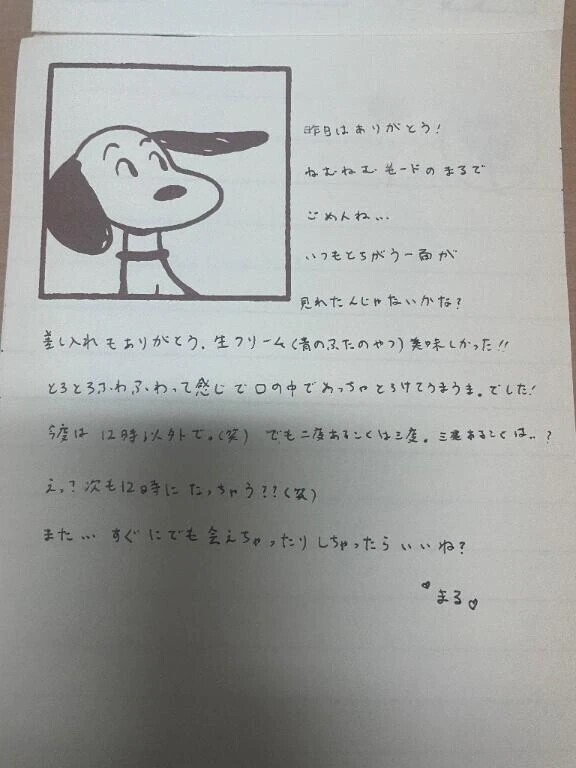 昨日はありがとう!
ねむねむモードのまるで
ごめんね...
いつもとちがう一面が
見れたんじゃないかな?
差し入れもありがとう。生クリーム(青のふたのやつ)美味しかった!!
とろとろふわふわって感じで口の中でめっちゃとろけてうまうま。でした!
今度は12時以外で。(笑) でも二度あることは三度。三度あることは..?
えっ?次も12時になっちゃう??(笑)
また... すぐにでも会えちゃったりしちゃったらいいね?
♡まる♡